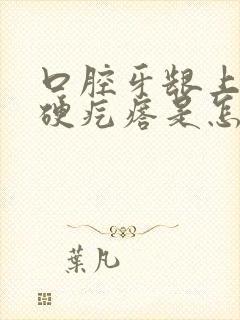 口腔牙龈上
硬疙瘩是怎
葉凡